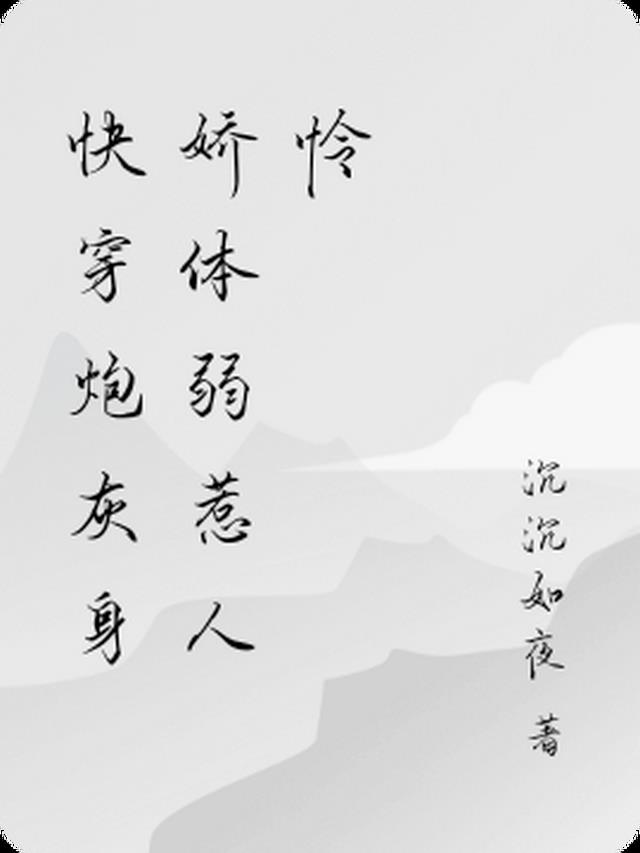 快穿炮灰身
娇体弱惹人
怜
沉沉如夜 著